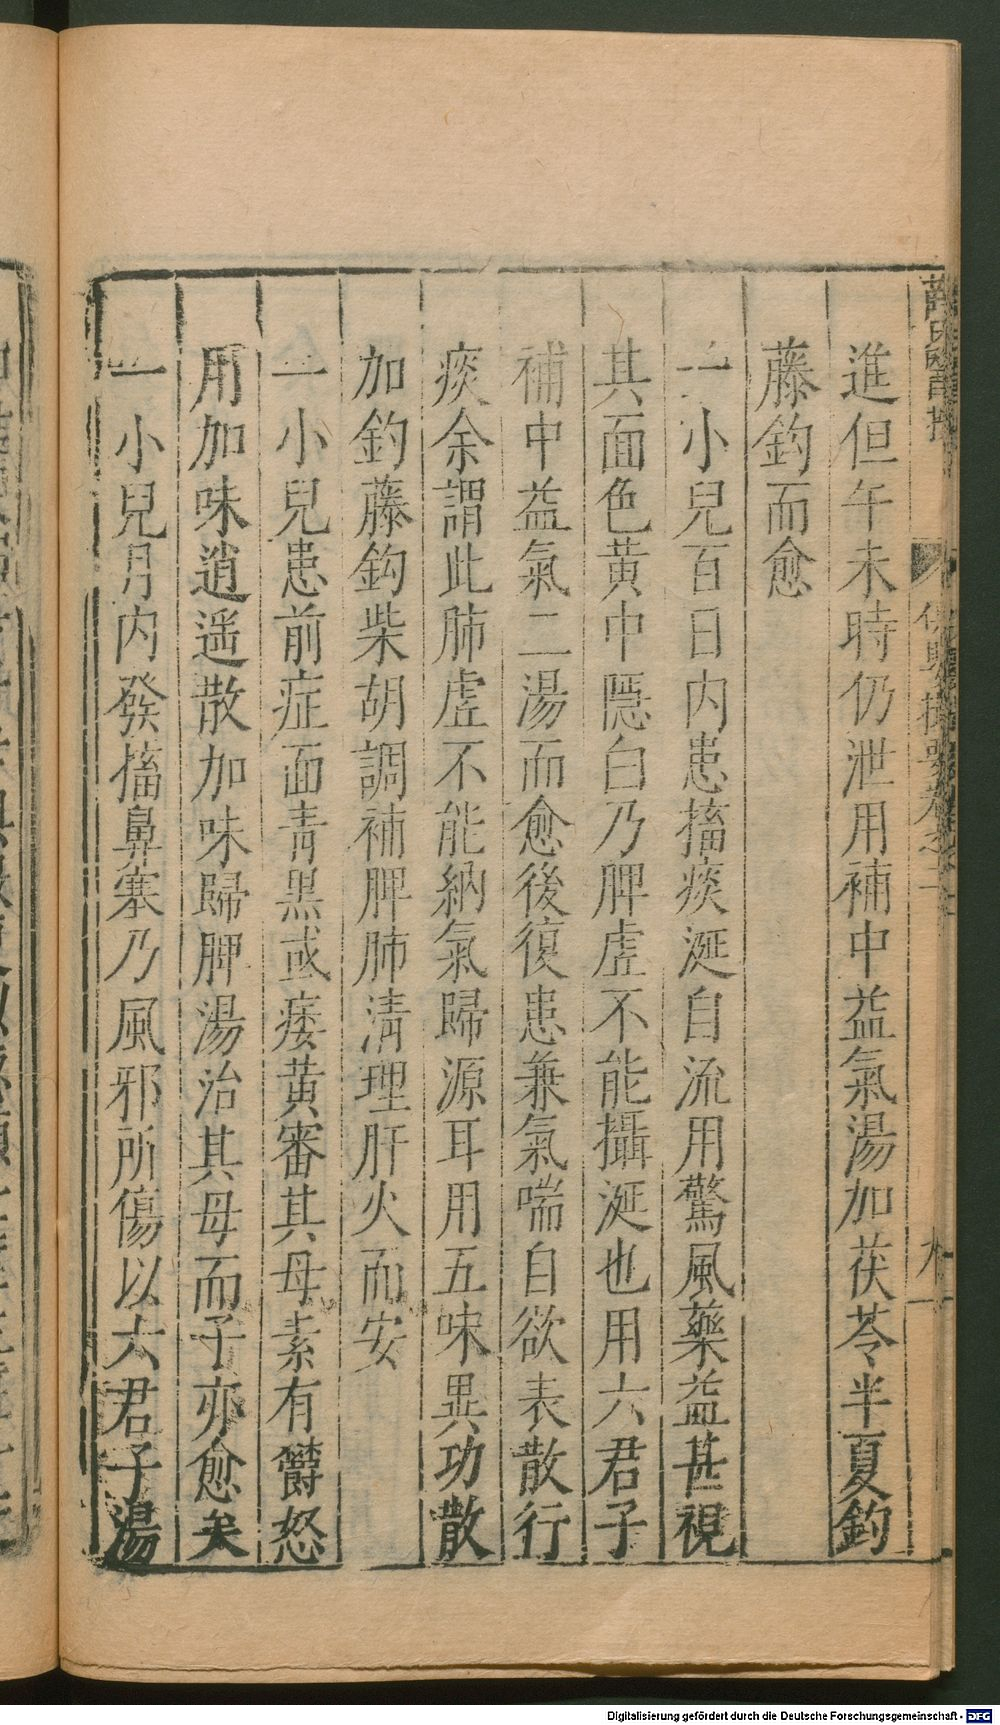 進但午未時仍泄用補中益氣湯加茯苓半夏釣
藤鈎而愈
一小兒百日內患搐痰涎自流用驚風藥益甚視
其面色黃中隱白乃脾虛不能攝涎也用六君子
補中益氣二湯而愈後復患兼氣喘自欲表散行
痰余謂此肺虛不能納氣歸源耳用五味異功散
加釣藤鈎柴胡調補脾肺清理肝火而安
一小兒患前症面青黑或痿黃審其母素有鬱怒
用加味逍遥散加味歸脾湯治其母而子亦愈矣
一小兒月內發搐鼻塞乃風邪所傷以六君子湯
Digitalisierung gefördert durch die Deutsche Forschungsgemeinschaft - DFG